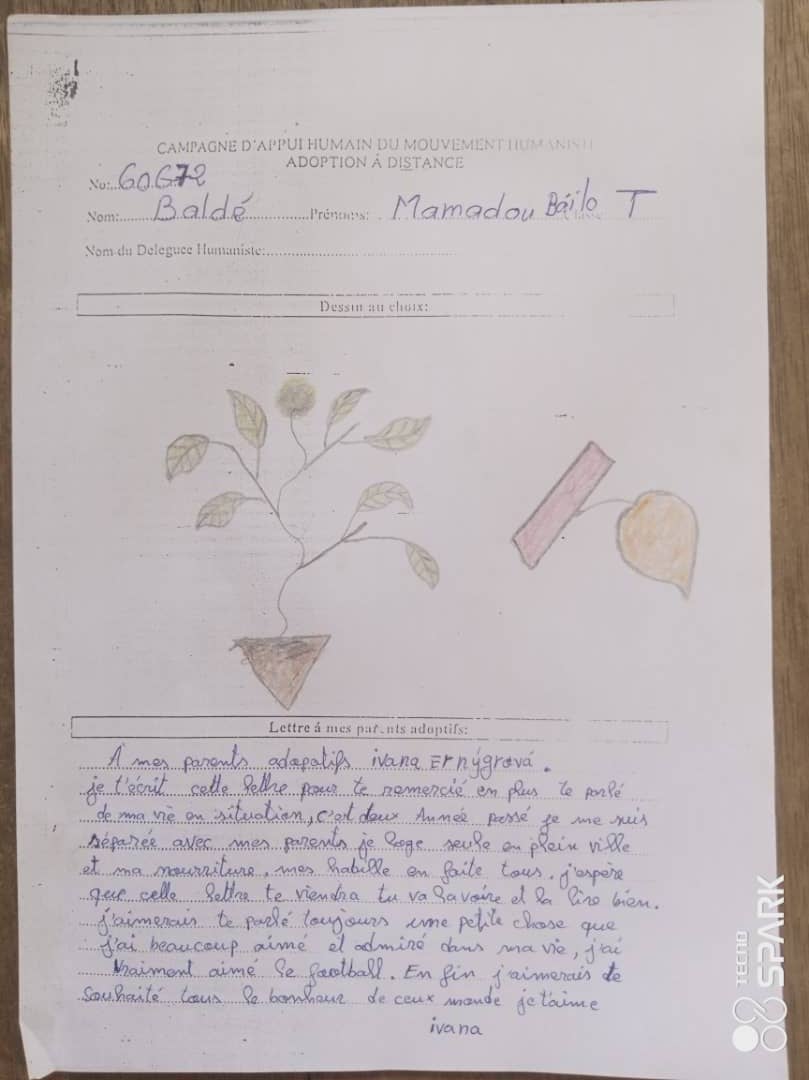 CAMPAGNE D'APPUI HUMAIN DU MOUVEMENT HUMANISTE
ADOPTION À DISTANCE
No: 60672
Nom: Baldé Prénoms: Mamadou Báilo T
Nom du Deleguee Humaniste:
Dessin au choix:
Lettre á mes parents adoptifs:
A mes parents adapatifs ivana Ernýgrová.
je t'écrit cette lettre pour te remercié en plus te parlé
de ma vie en situation, c'est deux Année passé je me suis
séparée avec mes parents je loge seule en plein ville
et ma nourriture, mes habille en faite tous. j'espère
que cette lettre te viendra tu va l'avoire et la lire bien.
j'aimerais te parlé toujours une petite chose que
j'ai beaucoup aimé et admiré dans ma vie, j'ai
Vraiment aimé le football. En fin j'aimerais te
souhaité tous le bonheur de ceux monde je t'aime
ivana
TECNO
SPARK